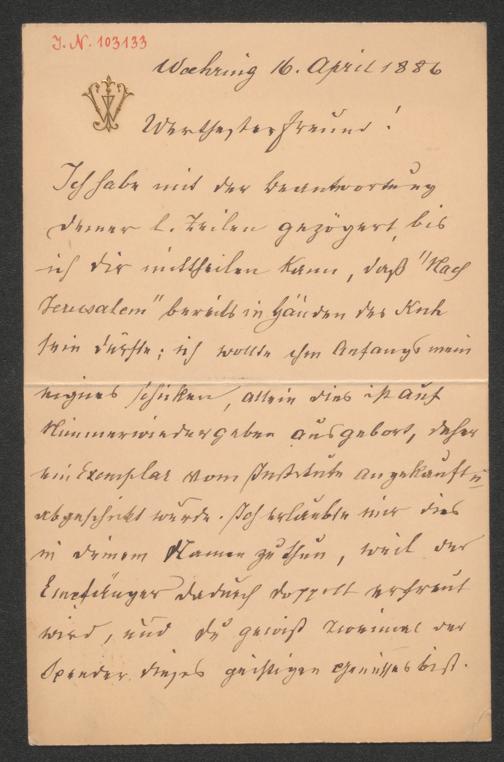 J. N. 103133
Waehring 16. April 1886
Werthester Freund!
Ich habe mit der Beantwortung
deiner l. Zeilen gezögert, bis
ich dir mittheilen kann, daß "Nach
Jerusalem" bereits in Händen des Kuh
sein dürfte; ich wollte ihm Anfangs mein
eignes schicken, allein dies ist auf
Nimmerwiedergeben ausgeborgt, daher
ein Exemplar vom Institute angekauft u
abgeschickt wurde. Ich erlaubte mir dies
in deinem Namen zu thun, weil der
Empfänger dadurch doppelt erfreut
wird, und du gewiß zweimal der
Spender dieses geistigen Genusses bist.